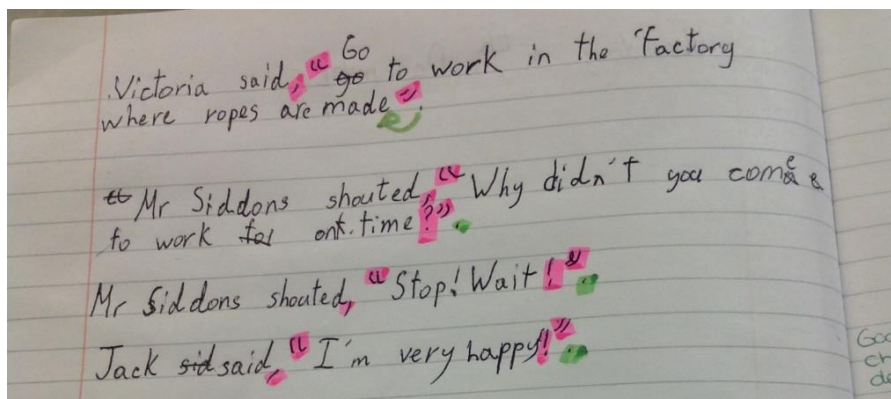 Go
Victoria said, " go to work in the Factory
where ropes are made".
Mr Siddons shouted, "Why didn't you come
to work for on time?".
Mr Siddons shouted, "Stop! Wait!".
Jack sid said, "I'm very happy!".